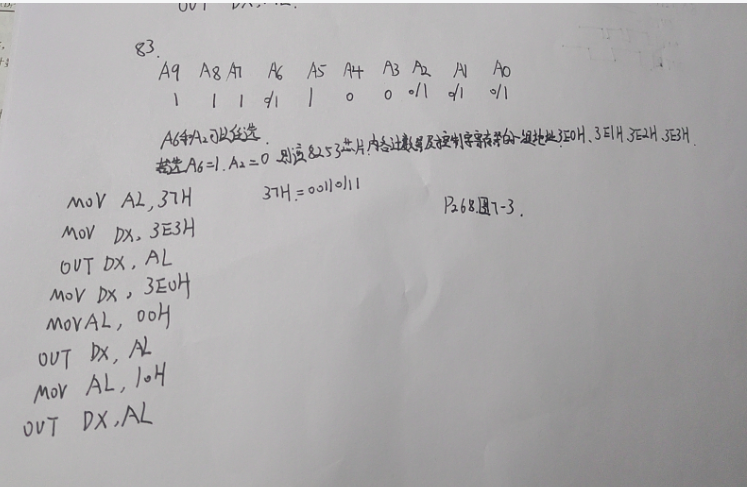 OUT DX, AL.
83.
A9 A8 A7 A6 A5 A4 A3 A2 A1 A0
1 1 1 0/1 1 0 0 0/1 0/1 0/1
A6和A2可以任选.
若选A6=1.A2=0 则该8253芯片内各计数器及控制字寄存器的一组地址:3E0H、3E1H、3E2H、3E3H.
MOV AL, 37H
37H.=00110111
P268.图7-3.
MOV DX, 3E3H
OUT DX, AL
MOV DX, 3E0H
MOV AL, 00H
OUT DX, AL
MOV AL, 10H
OUT DX, AL